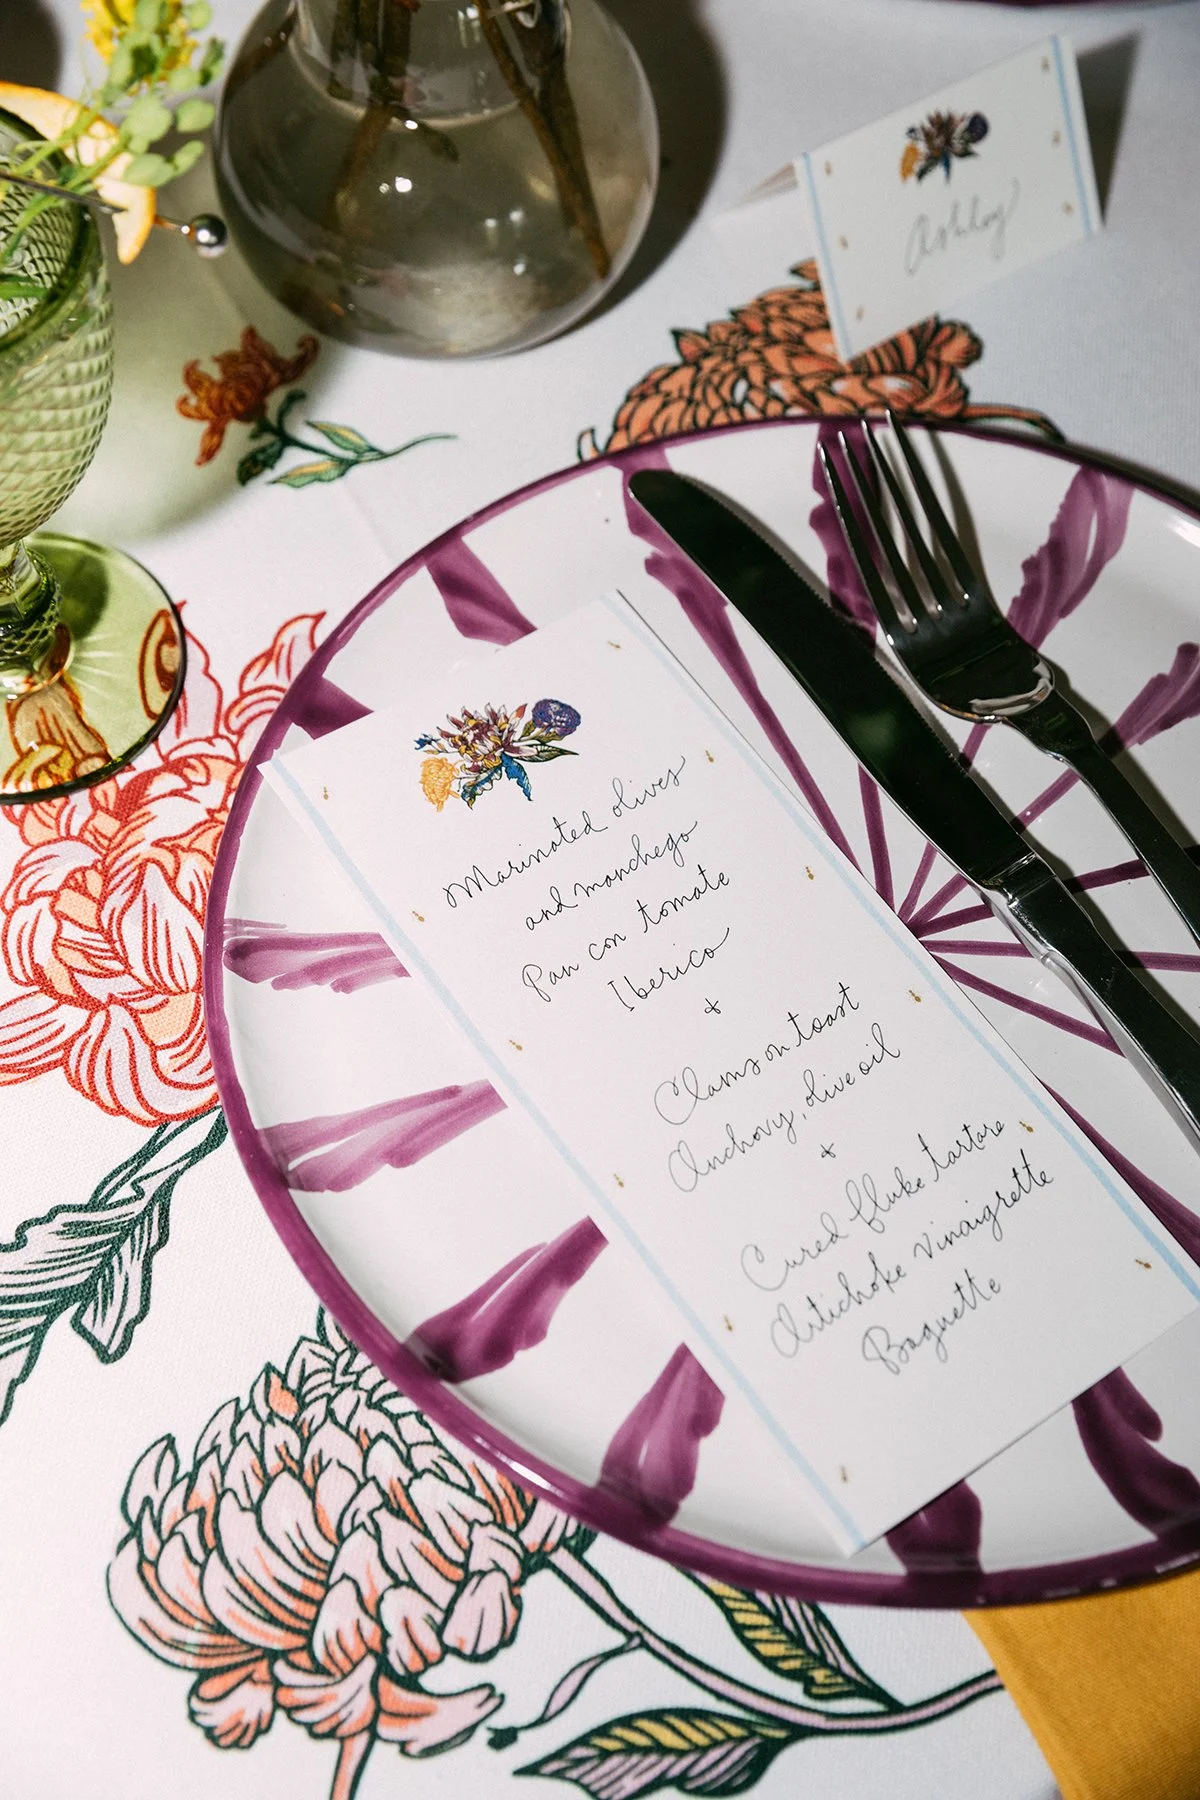 Ashley
Marinated olives
and manchego
Pan con tomate
Iberico
+
Clams on toast
Anchovy, olive oil
+
Cured fluke tartare
Artichoke vinaigrette
Baguette